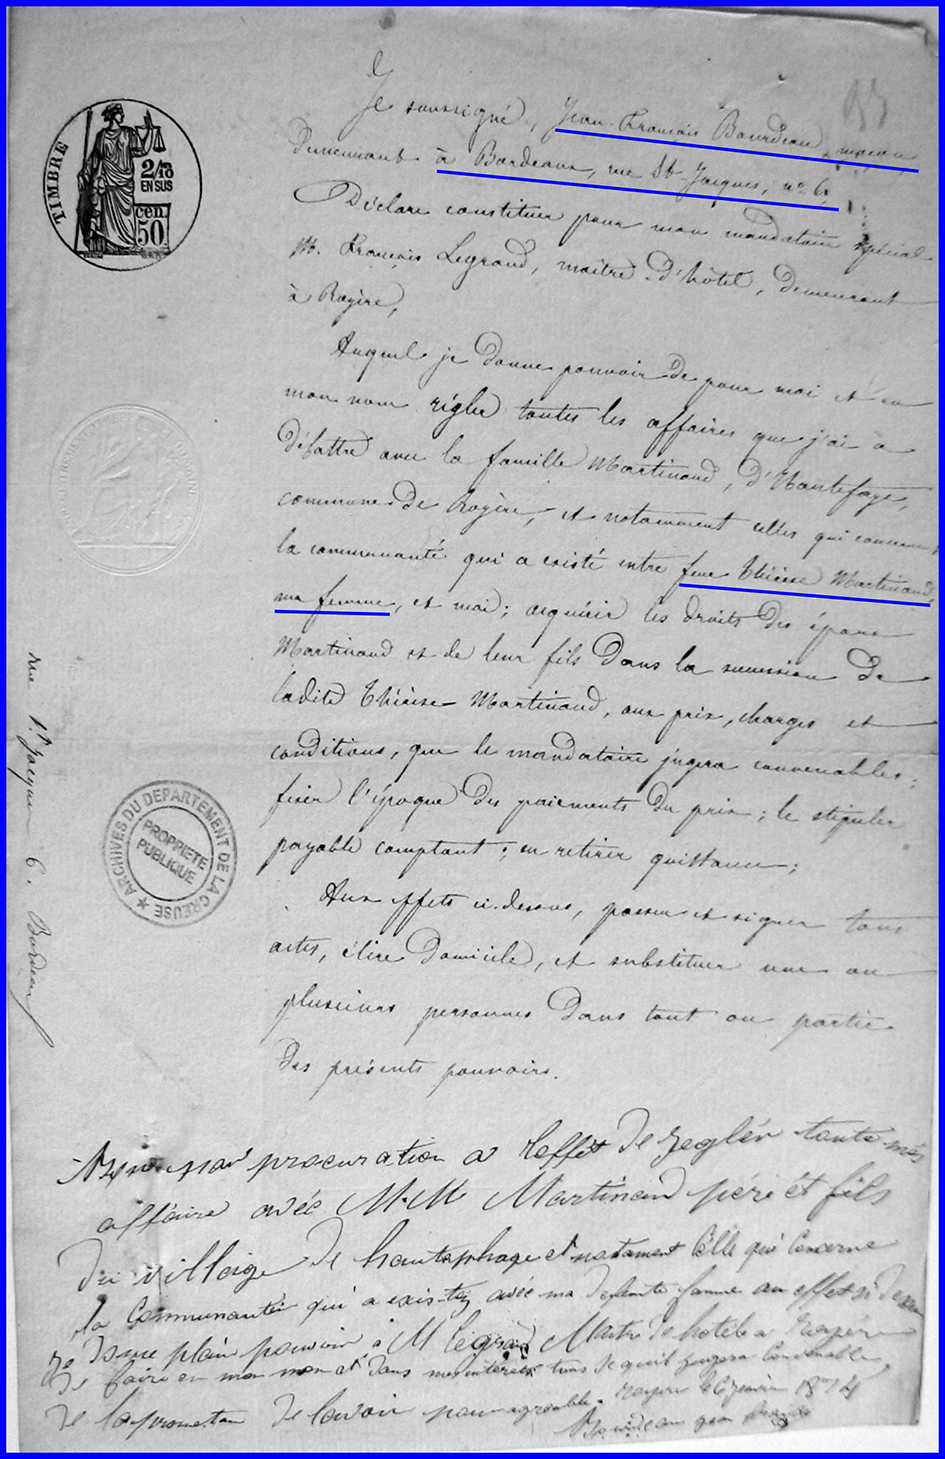 93
TIMBRE
2/10
EN SUS
cen.
50
Je soussigné, Jean-François Bourdeau, maçon,
Demeurant à Bordeaux, rue St Jacques, no 6,
Déclare constituer pour mon mandataire spécial
M. François Legrand, maître d'hôtel, demeurant
à Royère,
Auquel je donne pouvoir de pour moi et en
mon nom régler toutes les affaires que j'ai à
débattre avec la famille Martinaud, d'Hautefaye,
commune de Royère, et notamment celles qui concernent
la communauté qui a existé entre feue Thérèse Martinaud,
ma femme, et moi; acquérir les droits des époux
Martinaud et de leur fils dans la succession de
ladite Thérèse Martinaud, aux prix, charges et
conditions, que le mandataire jugera convenables;
fixer l'époque des paiements du prix; le stipuler
payable comptant; en retirer quittance;
Aux effets ci-dessus, passer et signer tous
actes, élire domicile, et substituer une ou
plusieurs personnes dans tout ou partie
des présents pouvoirs.
rue St Jacques 6. Bordeaux
ARCHIVES DU DEPARTEMENT DE LA CREUSE
PROPRIETE
PUBLIQUE
procuration a leffet de reglér toute mes
affaire avéc M.M Martinaud pére ét fils
du villaige de hautephage et notament Célle qui Concerne
la Communauté qui a existez avéc ma defunte famme au effet si desu
Je donne plain pouvoir a M legrand Maitre de hotel a Royér
de faire en mon non et dans mes intérets tous se quil jugera Convenable,
de la prometan de lavoir pour agreable. royere le 6 janvier 1874
Bourdeau jean